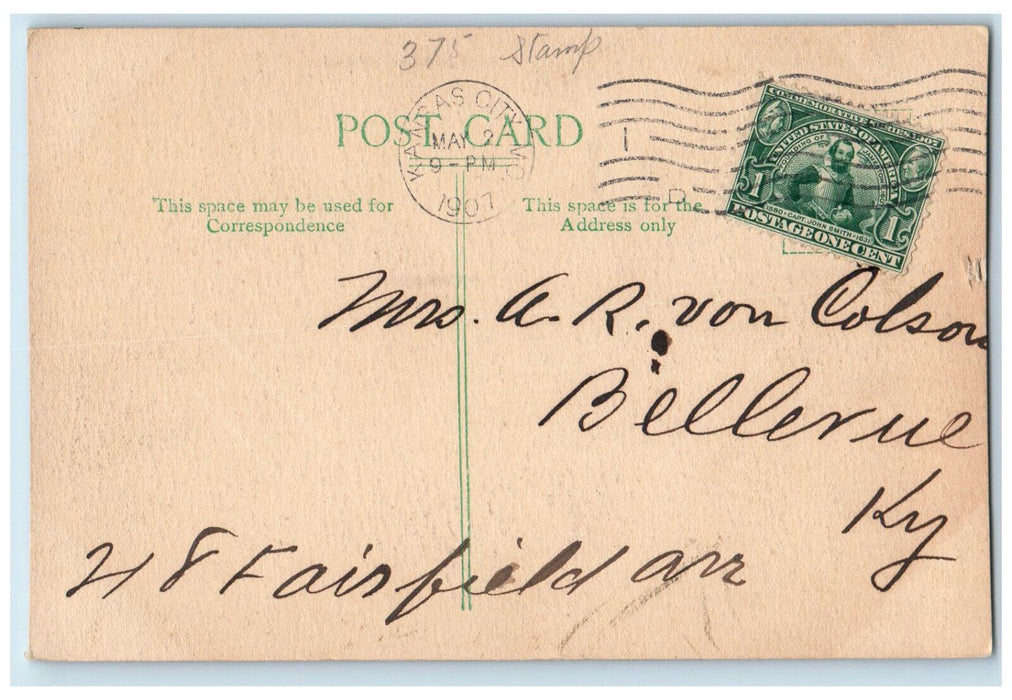 375 Stamp
POST CARD
KANSAS CITY, MO.
MAY 2
9-PM
1907
1
D
COMMEMORATIVE SERIES 1907
UNITED STATES OF AMERICA
FOUNDING OF JAMESTOWN
1 1
1580-CAPT. JOHN SMITH-1631
POSTAGE ONE CENT
This space may be used for
Correspondence
This space is for the
Address only
Mrs. A. R. von Colson
Bellevue
Ky
Fairfield